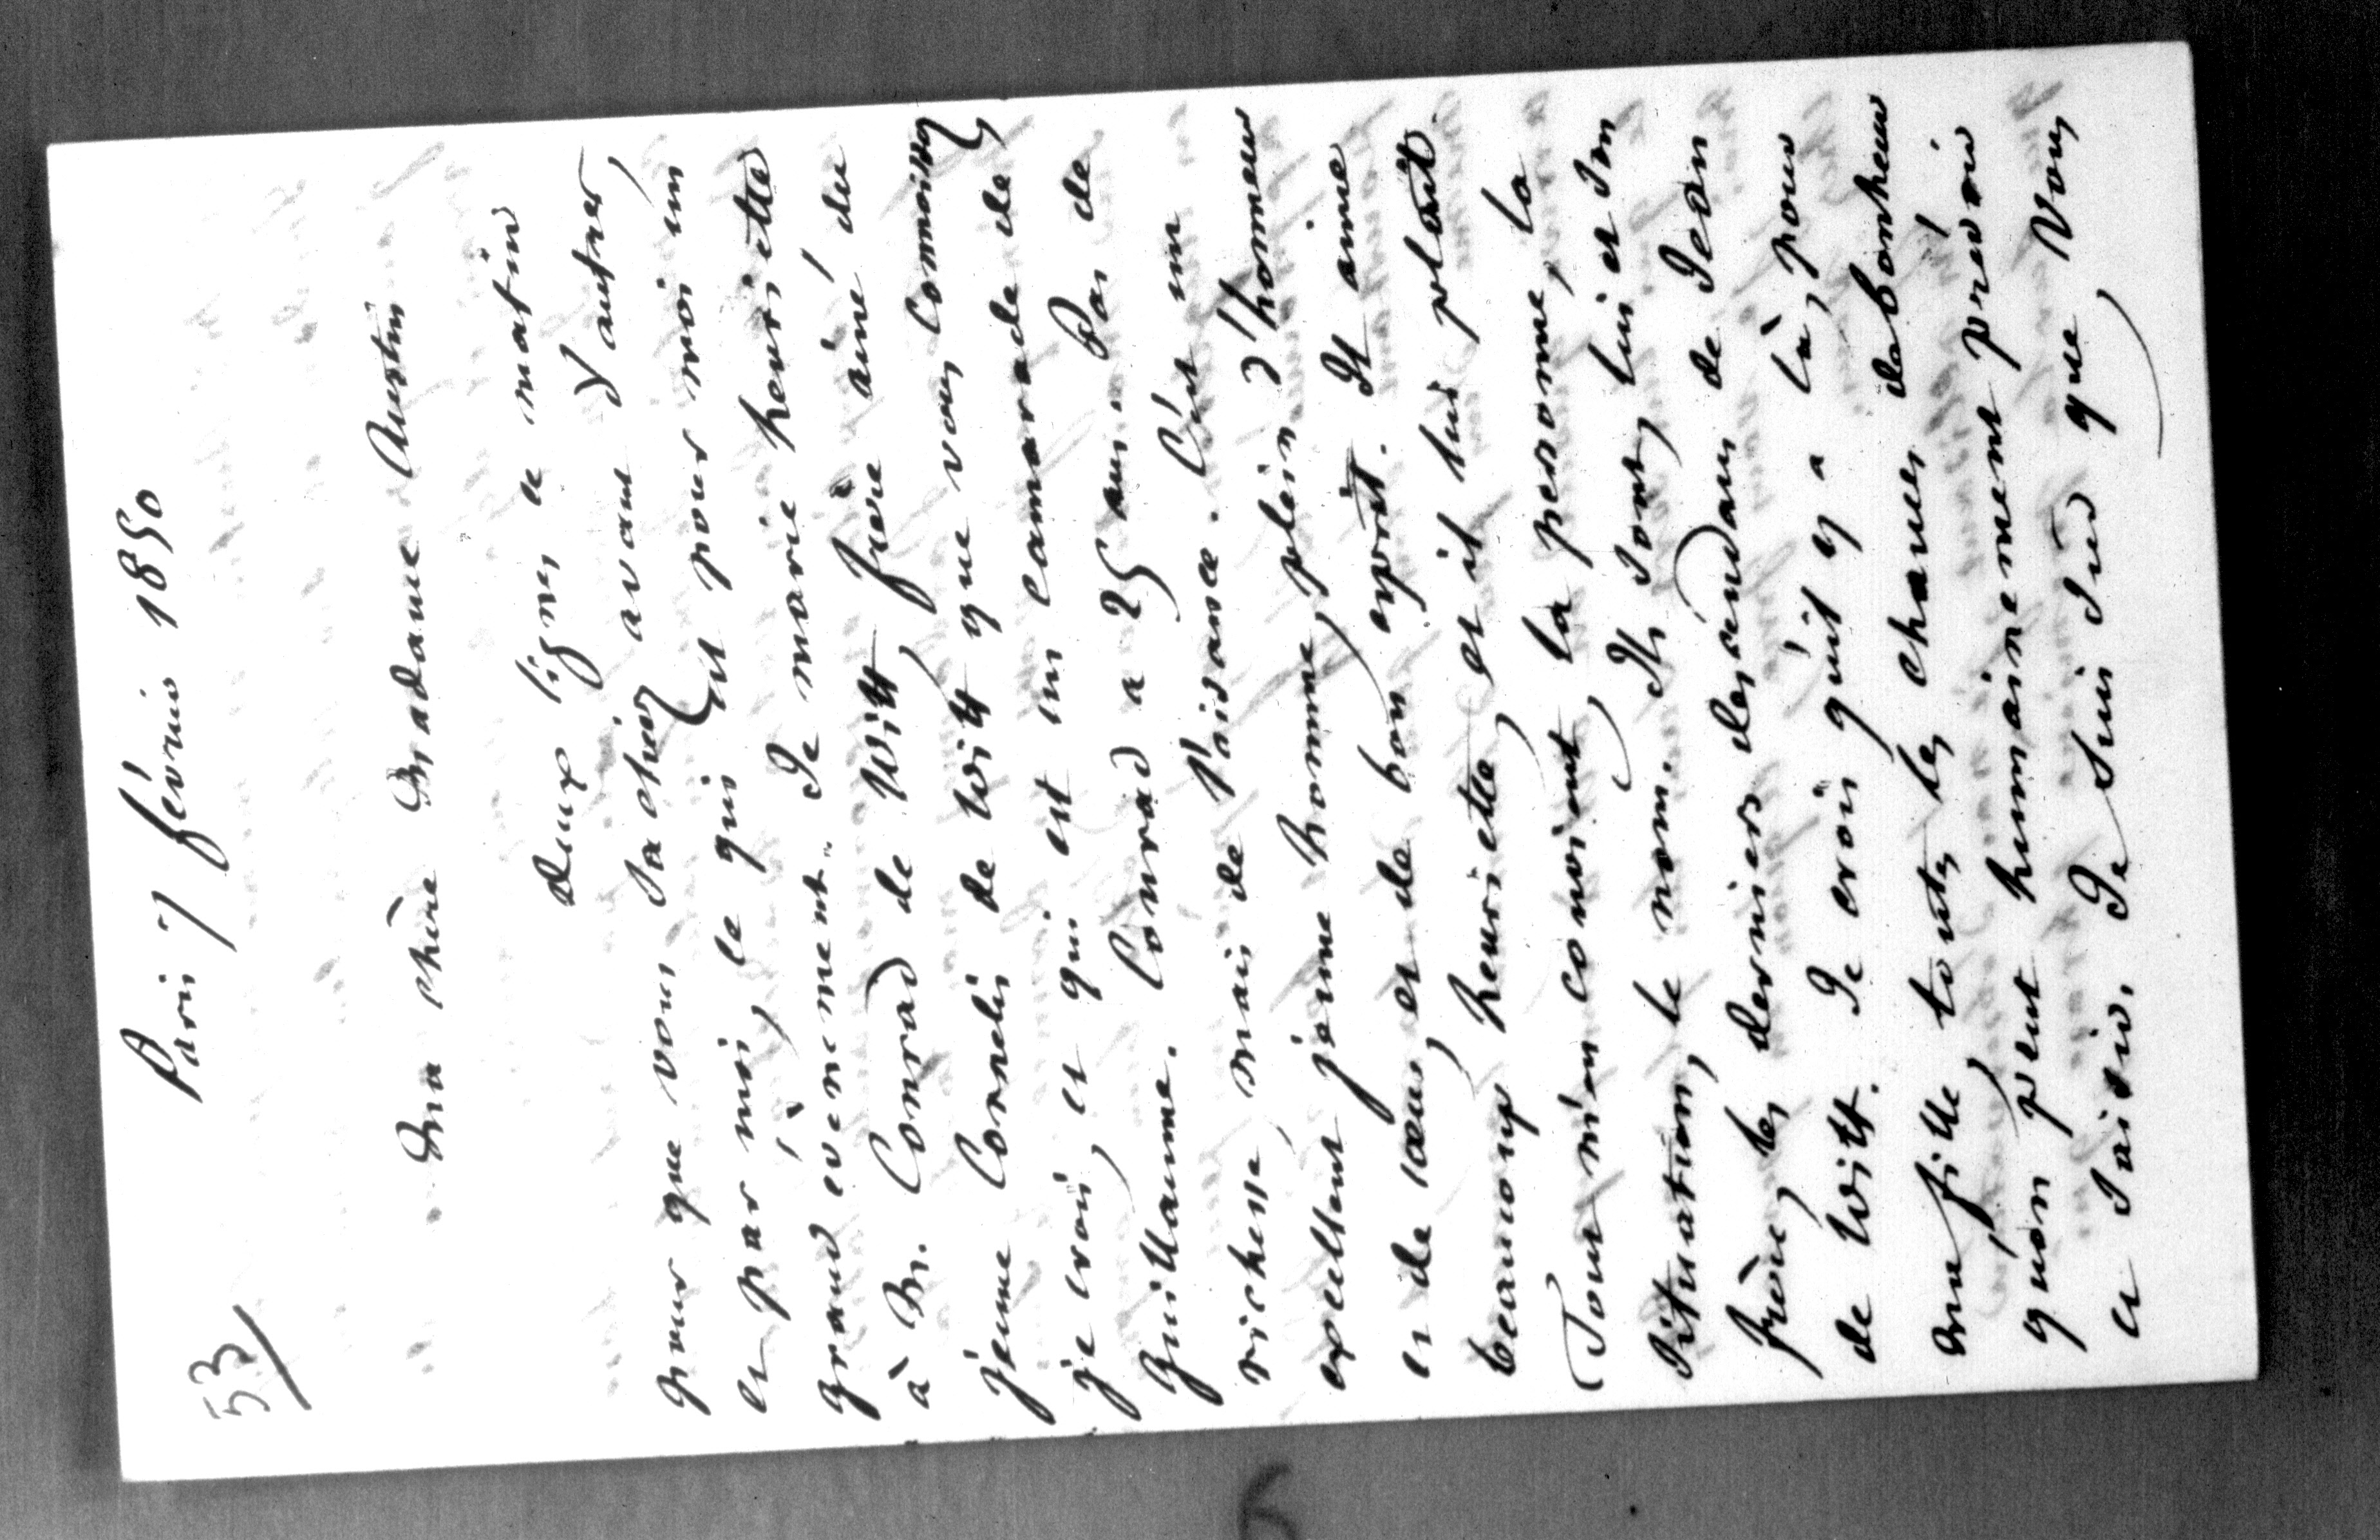 53
Paris 7 février 1850
Ma chère Madame Austin
deux lignes ce matin
pour que vous sachiez avant d'autres,
et par moi, ce qui est pour moi un
grand évènement. Je marie henriette
à M. Conrad de Witt, frère ainé du
jeune Cornelis de Witt que vous connoissez
je crois, et qui est un camarade de
Guillaume. Conrad a 25 ans. Pas de
richesse, mais de l'aisance. C'est un
excellent jeune homme, plein d'honneur
et de cœur, et de bon esprit. Il aime
beaucoup henriette, et il lui plaît.
Tout m'en convient, la personne, la
situation, le nom. Ils sont, lui et son
frère, les derniers descendans de Jean
de Witt. Je crois qu'il y a là, pour
ma fille, toutes les chances de bonheur
qu'on peut humainement prévoir
et saisir. Je suis sur que vous